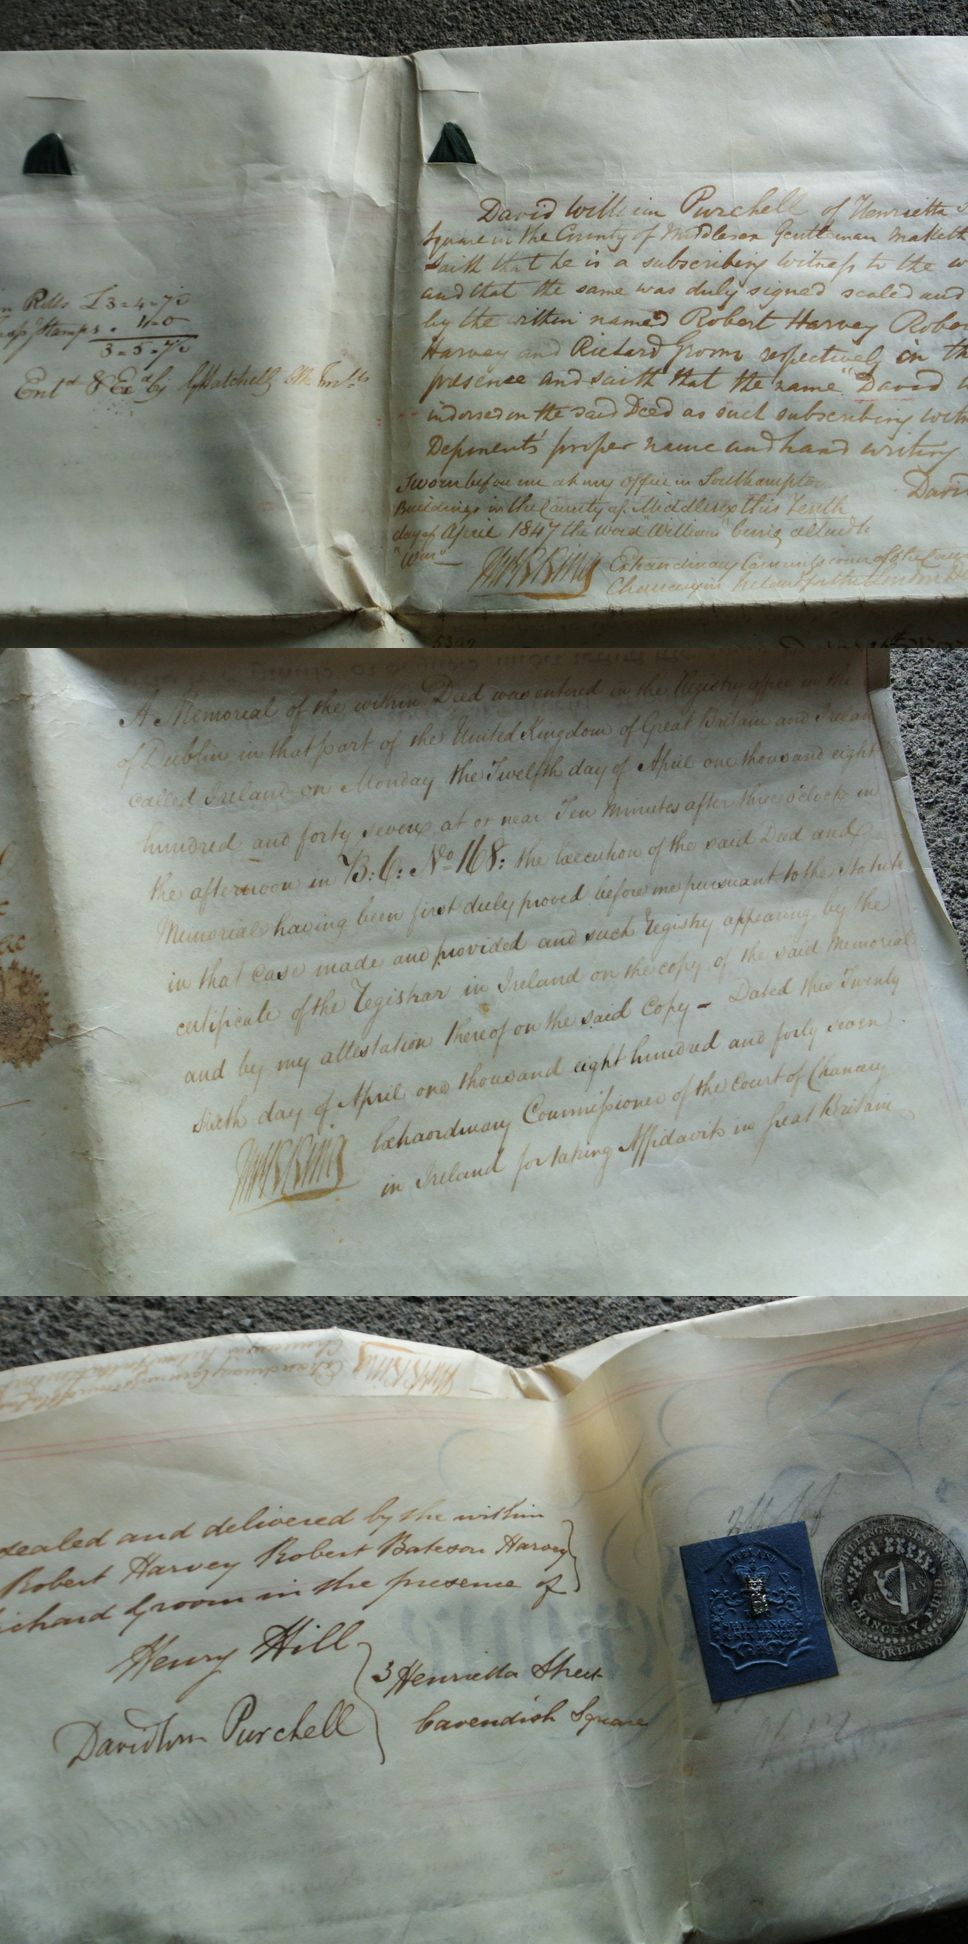 n Rolls £3=4=7½
Stamps . 11=0
3=5=7½
Entd & Exd by
David William Purchell of Henrietta S
Square in the County of Middlesex Gentleman maketh
Saith that he is a subscribing witness to the w
and that the same was duly signed sealed and
by the within named Robert Harvey Rober
Harvey and Richard Groom respectively in th
presence and saith that the name "David W
indorsed on the said Deed as such subscribing witn
Deponents' proper name and hand writing
Davi
Sworn before me at my office in Southampton
Buildings in the County of Middlesex this Tenth
day of April 1847 the word "William" being altered to
"Wm"
Extraordinary Commissioner of the Court
Chancery in Ireland for the London
A Memorial of the within Deed was entered in the Registry office in the
of Dublin in that part of the United Kingdom of Great Britain and Irelan
called Ireland on Monday the Twelfth day of April one thousand eight
hundred and forty seven at or near Ten Minutes after three o'clock in
the afternoon in B: 6: No 168: the Execution of the said Deed and
Memorial having been first duly proved before me pursuant to the statute
in that case made and provided and such Registry appearing by the
certificate of the Registrar in Ireland on the copy of the said Memorial
and by my attestation thereof on the said Copy – Dated this Twenty
sixth day of April one thousand eight hundred and forty seven.
Extraordinary Commissioner of the Court of Chancery
in Ireland for taking Affidavits in Great Britain
sealed and delivered by the within
Robert Harvey Robert Bateson Harvey
ichard Groom in the presence of
Henry Hill
David Wm Purchell
3 Henrietta Street
Cavendish Square
IRELAND
SHILLINGS
PENCE
SHILLINGS & SIX PENCE
CHANCERY FUND
IRELAND